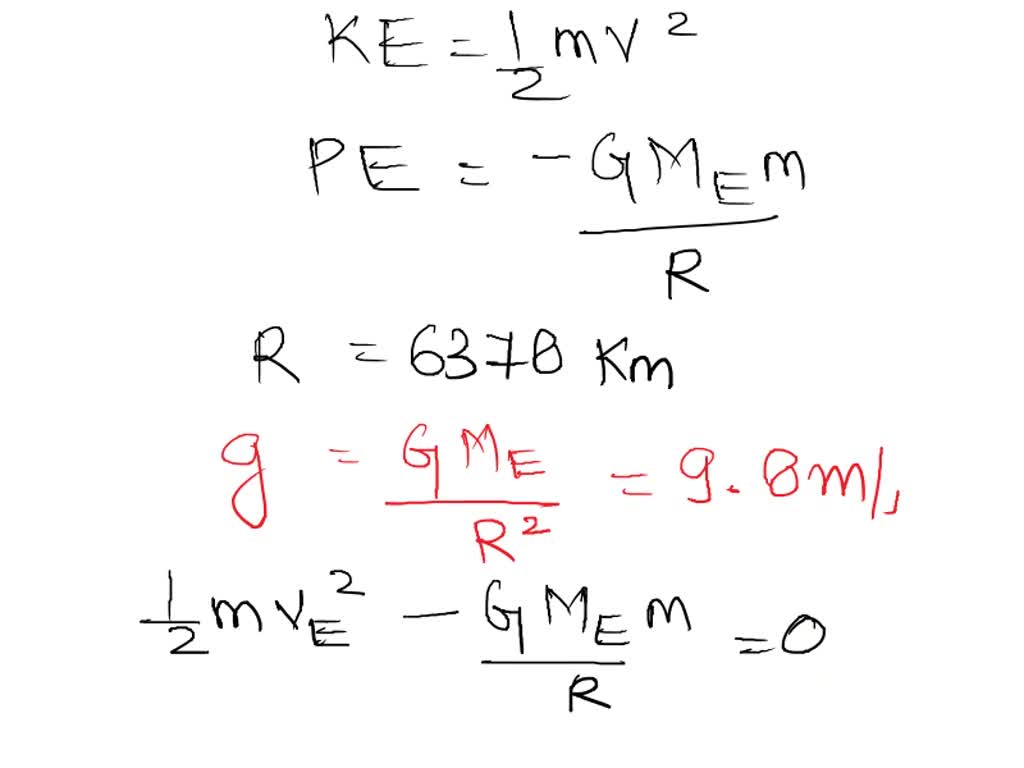 KE = 1/2 mv²
PE = - GM_E m / R
R = 6378 Km
g = GM_E / R² = 9.8m/,
1/2 mv_E² - GM_E m / R = 0